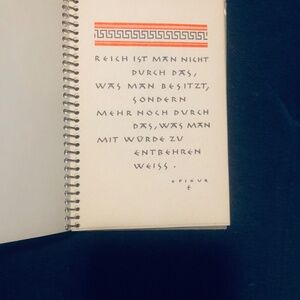 REICH IST MAN NICHT
DURCH DAS,
WAS MAN BESITZT,
SONDERN
MEHR NOCH DURCH
DAS, WAS MAN
MIT WÜRDE ZU
ENTBEHREN
WEISS.
EPIKUR